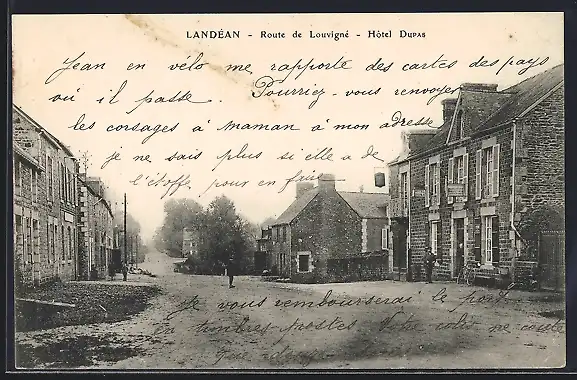 LANDÉAN - Route de Louvigné - Hôtel DUPAS
Jean en velo me rapporte des cartes des pays
où il passe. Pourriez-vous renvoyer
les corsages à maman à mon adresse
je ne sais plus si elle a de
l'étoffe pour en
Je vous rembourserai le port
en timbres postes le colis ne coute
que